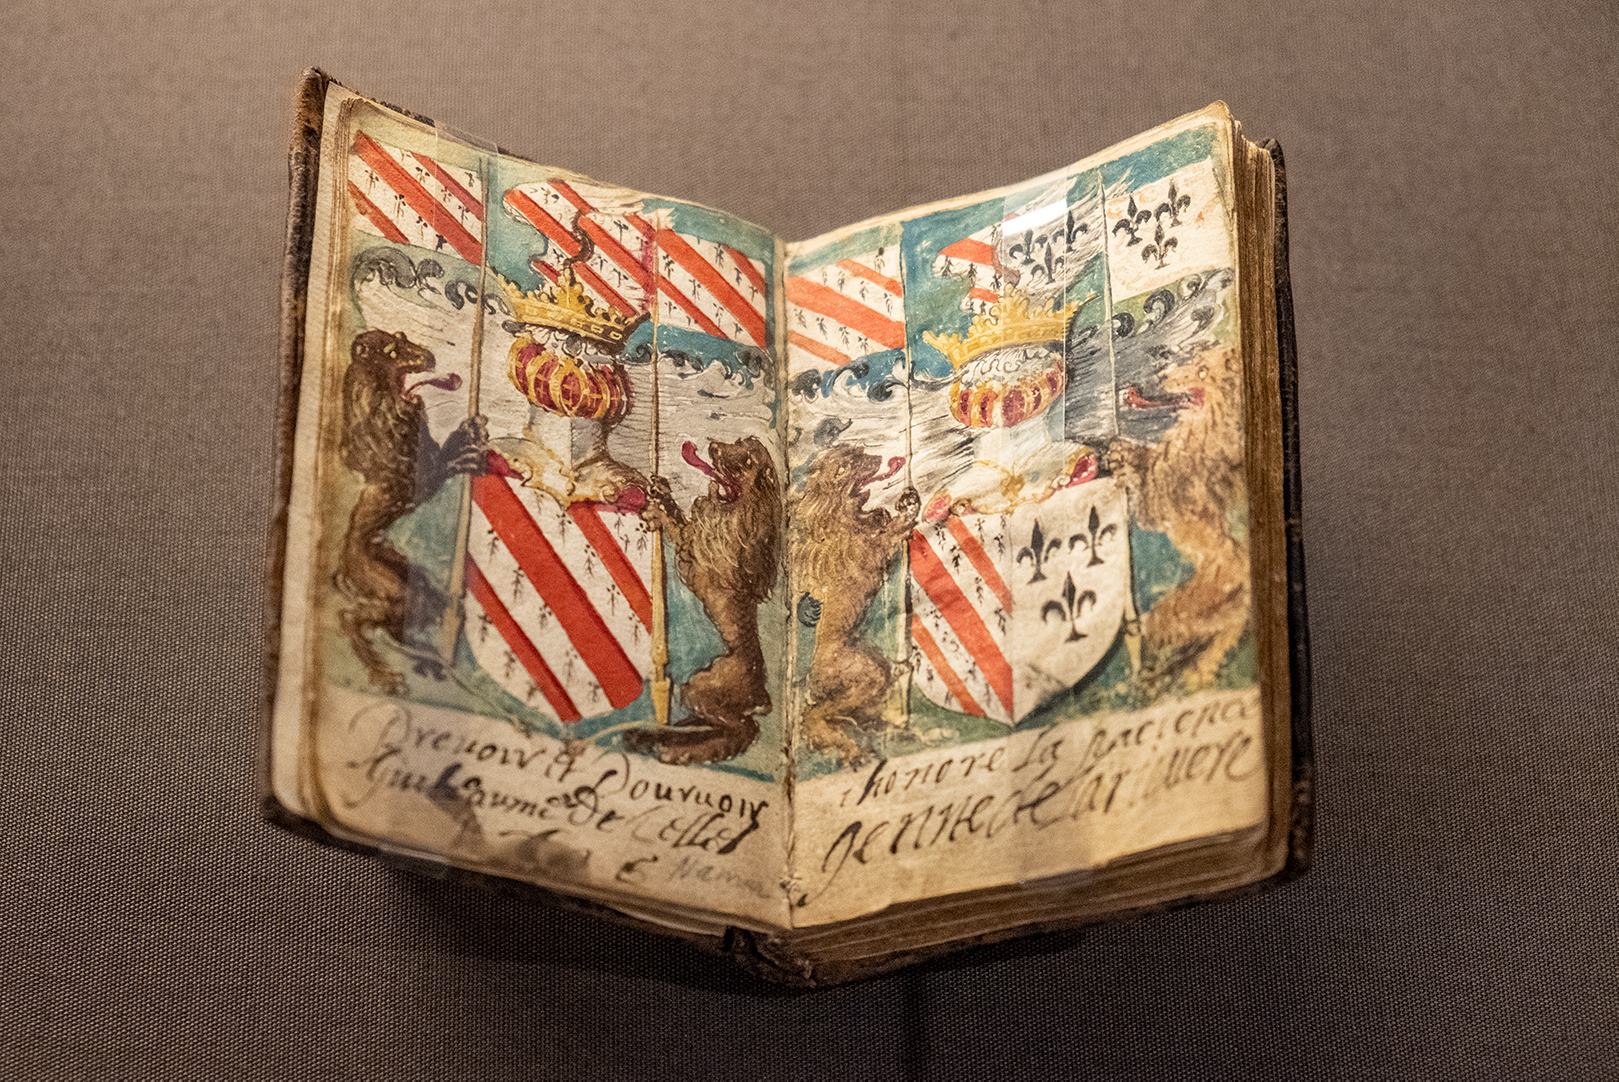 Prevoir et Pourvoir
Guillaume De Celles
Namur
ihonore La pacience
Jenne de la rivuere